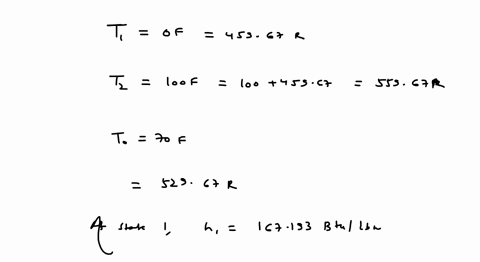 T₁ = 0F = 459.67 R
T₂ = 100F = 100 + 459.67 = 559.67R
T₀ = 70 F
= 529.67 R
At state 1, h₁ = 167.193 Btu/lbm